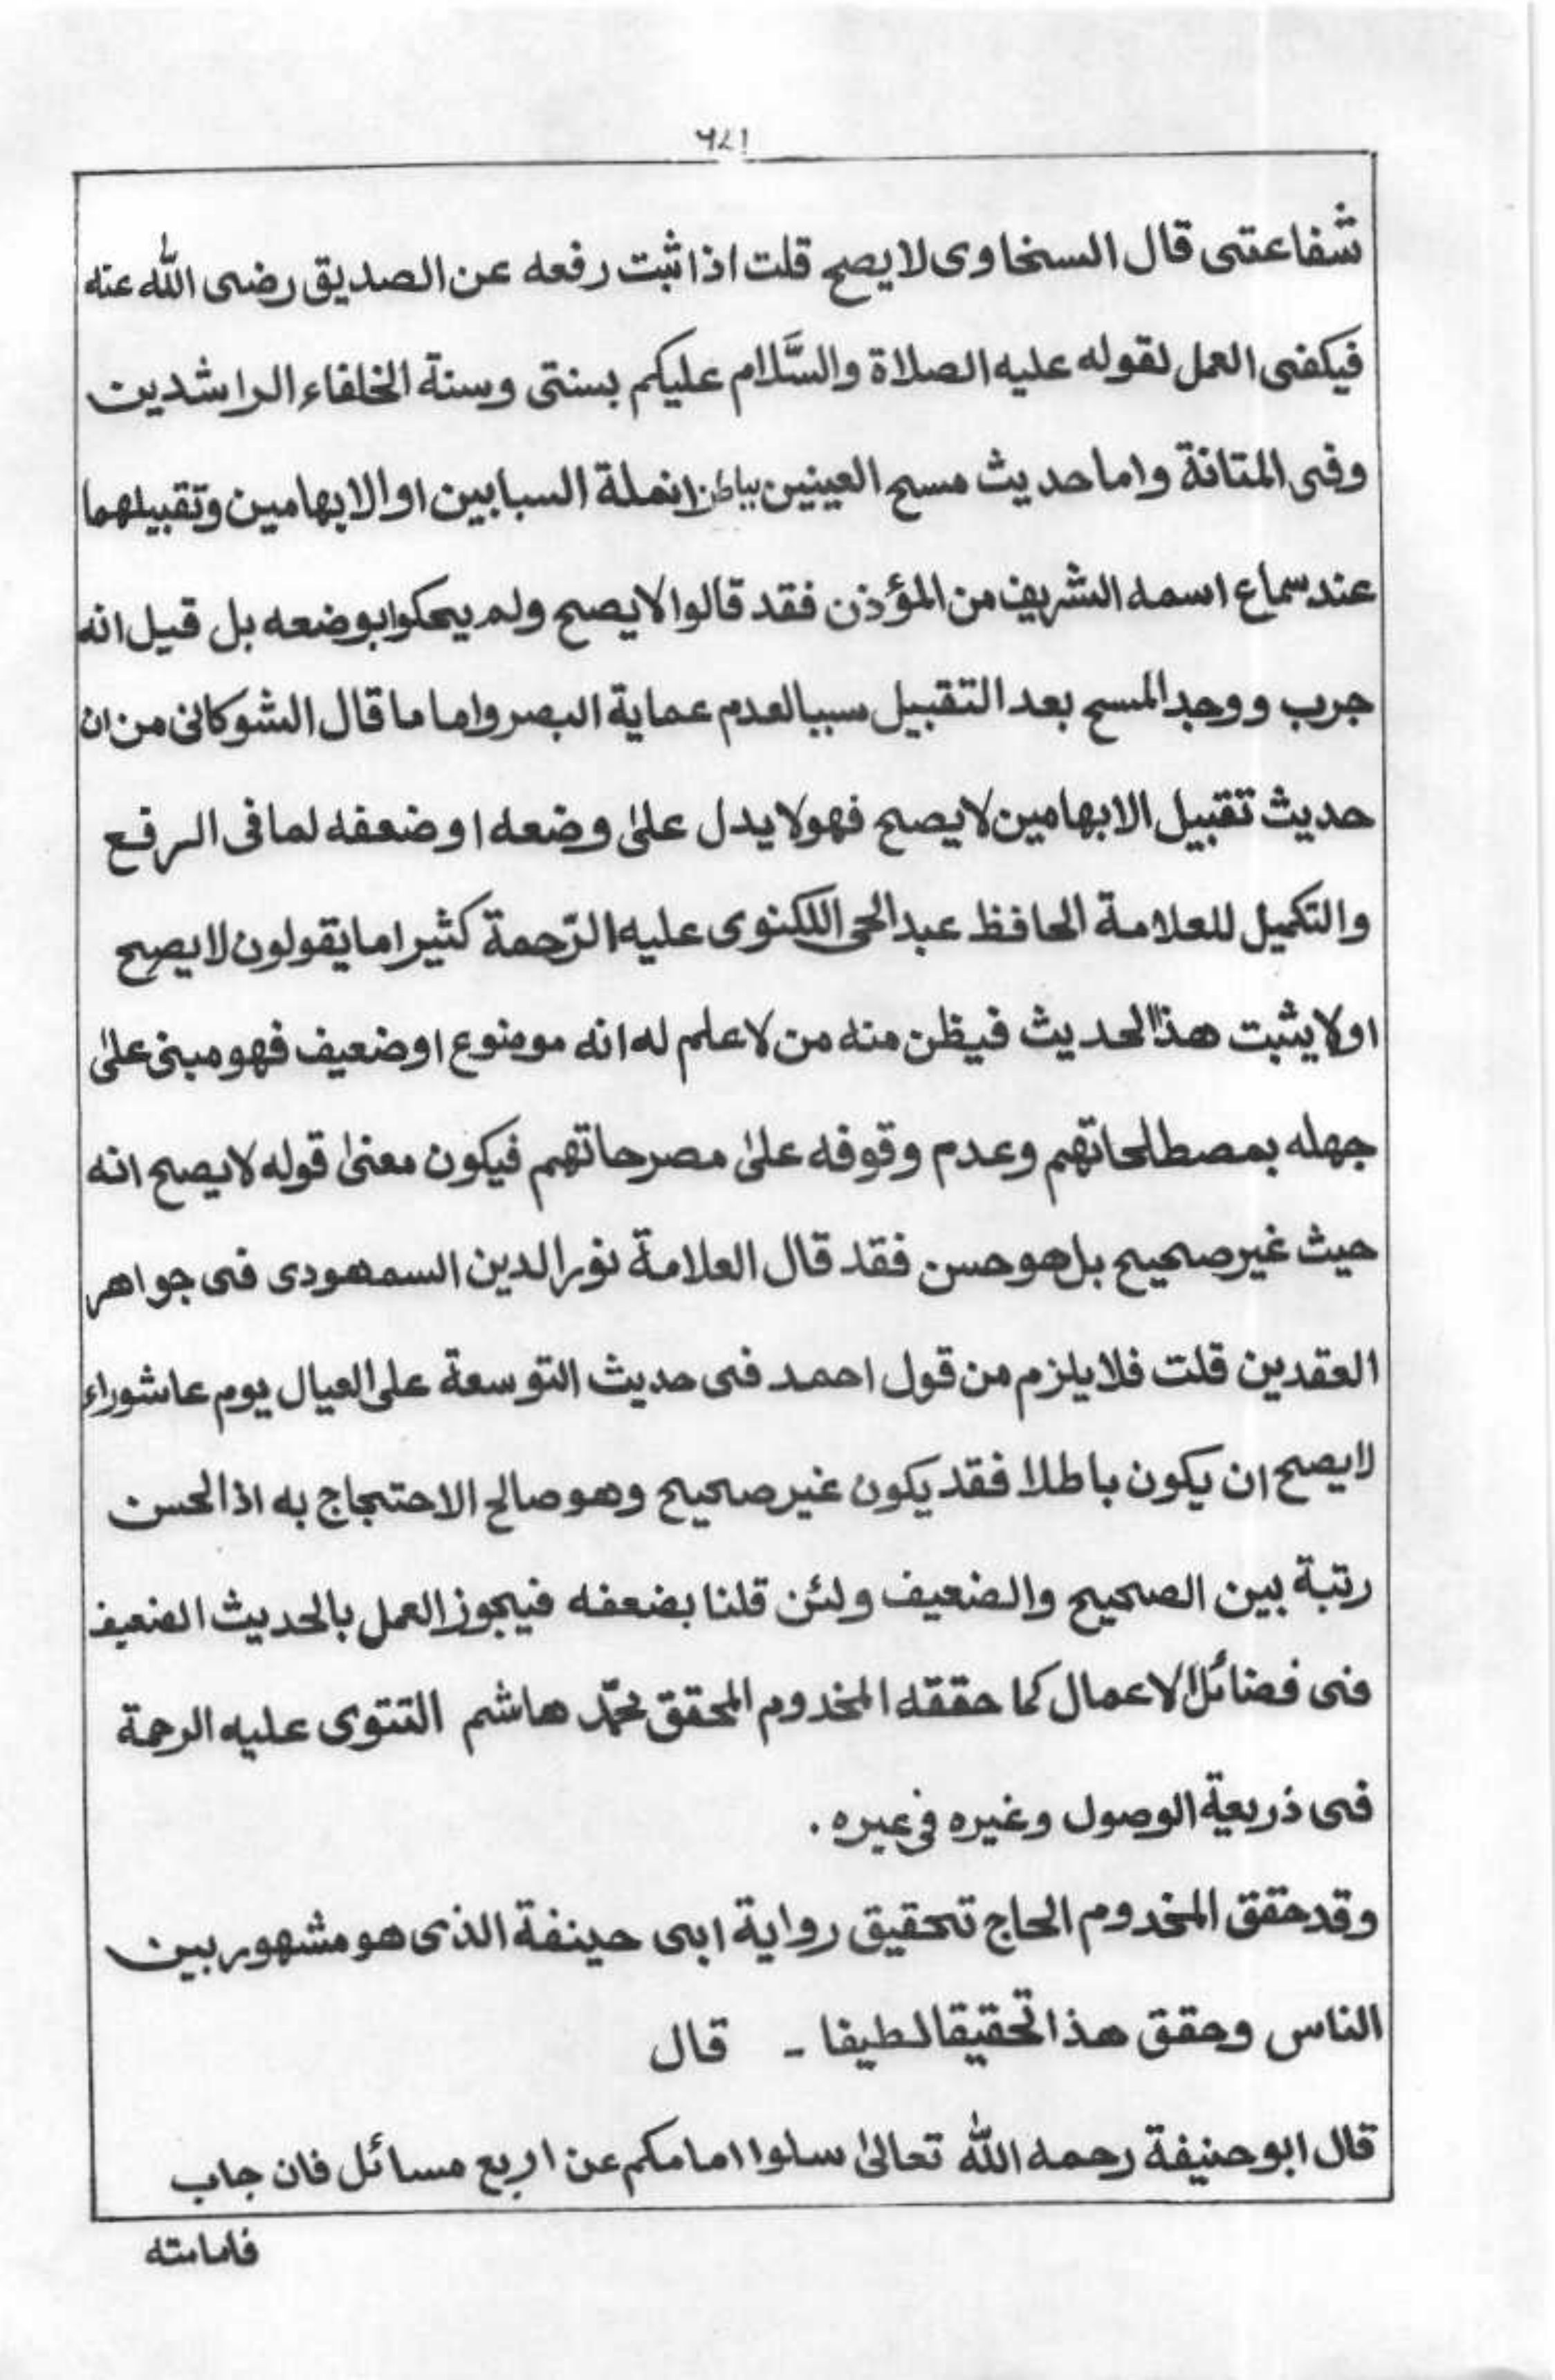 ٦٧١
شفاعتى قال السخاوى لا يصح قلت اذا ثبت رفعه عن الصديق رضى الله عنه
فيكفى العمل لقوله عليه الصلاة والسَّلام عليكم بسنتى وسنة الخلفاء الراشدين
وفى المتانة واما حديث مسح العينين بباطن انملة السبابين او الابهامين وتقبيلهما
عند سماع اسمه الشريف من المؤذن فقد قالوا لا يصح ولم يحكوا بوضعه بل قيل انه
جرب ووجد المسح بعد التقبيل سببا لعدم عماية البصر واما ما قال الشوكانى من ان
حديث تقبيل الابهامين لا يصح فهو لا يدل علىٰ وضعه او ضعفه لما فى الرفع
والتكميل للعلامة الحافظ عبد الحى اللكنوى عليه الرّحمة كثيرا ما يقولون لا يصح
او لا يثبت هذا الحديث فيظن منه من لا علم له انه موضوع او ضعيف فهو مبنى علىٰ
جهله بمصطلحاتهم وعدم وقوفه علىٰ مصرحاتهم فيكون معنىٰ قوله لا يصح انه
حيث غير صحيح بل هو حسن فقد قال العلامة نور الدين السمهودى فى جواهر
العقدين قلت فلا يلزم من قول احمد فى حديث التوسعة على العيال يوم عاشوراء
لا يصح ان يكون باطلا فقد يكون غير صحيح وهو صالح الاحتجاج به اذ الحسن
رتبة بين الصحيح والضعيف ولئن قلنا بضعفه فيجوز العمل بالحديث الضعيف
فى فضائل الاعمال كما حققه المخدوم المحقق محمّد هاشم التتوى عليه الرحمة
فى ذريعة الوصول وغيره فى عيره .
وقد حقق المخدوم الحاج تحقيق رواية ابى حينفة الذى هو مشهور بين
الناس وحقق هذا تحقيقا لطيفا - قال
قال ابو حنيفة رحمه الله تعالىٰ سلوا امامكم عن اربع مسائل فان جاب
فامامته